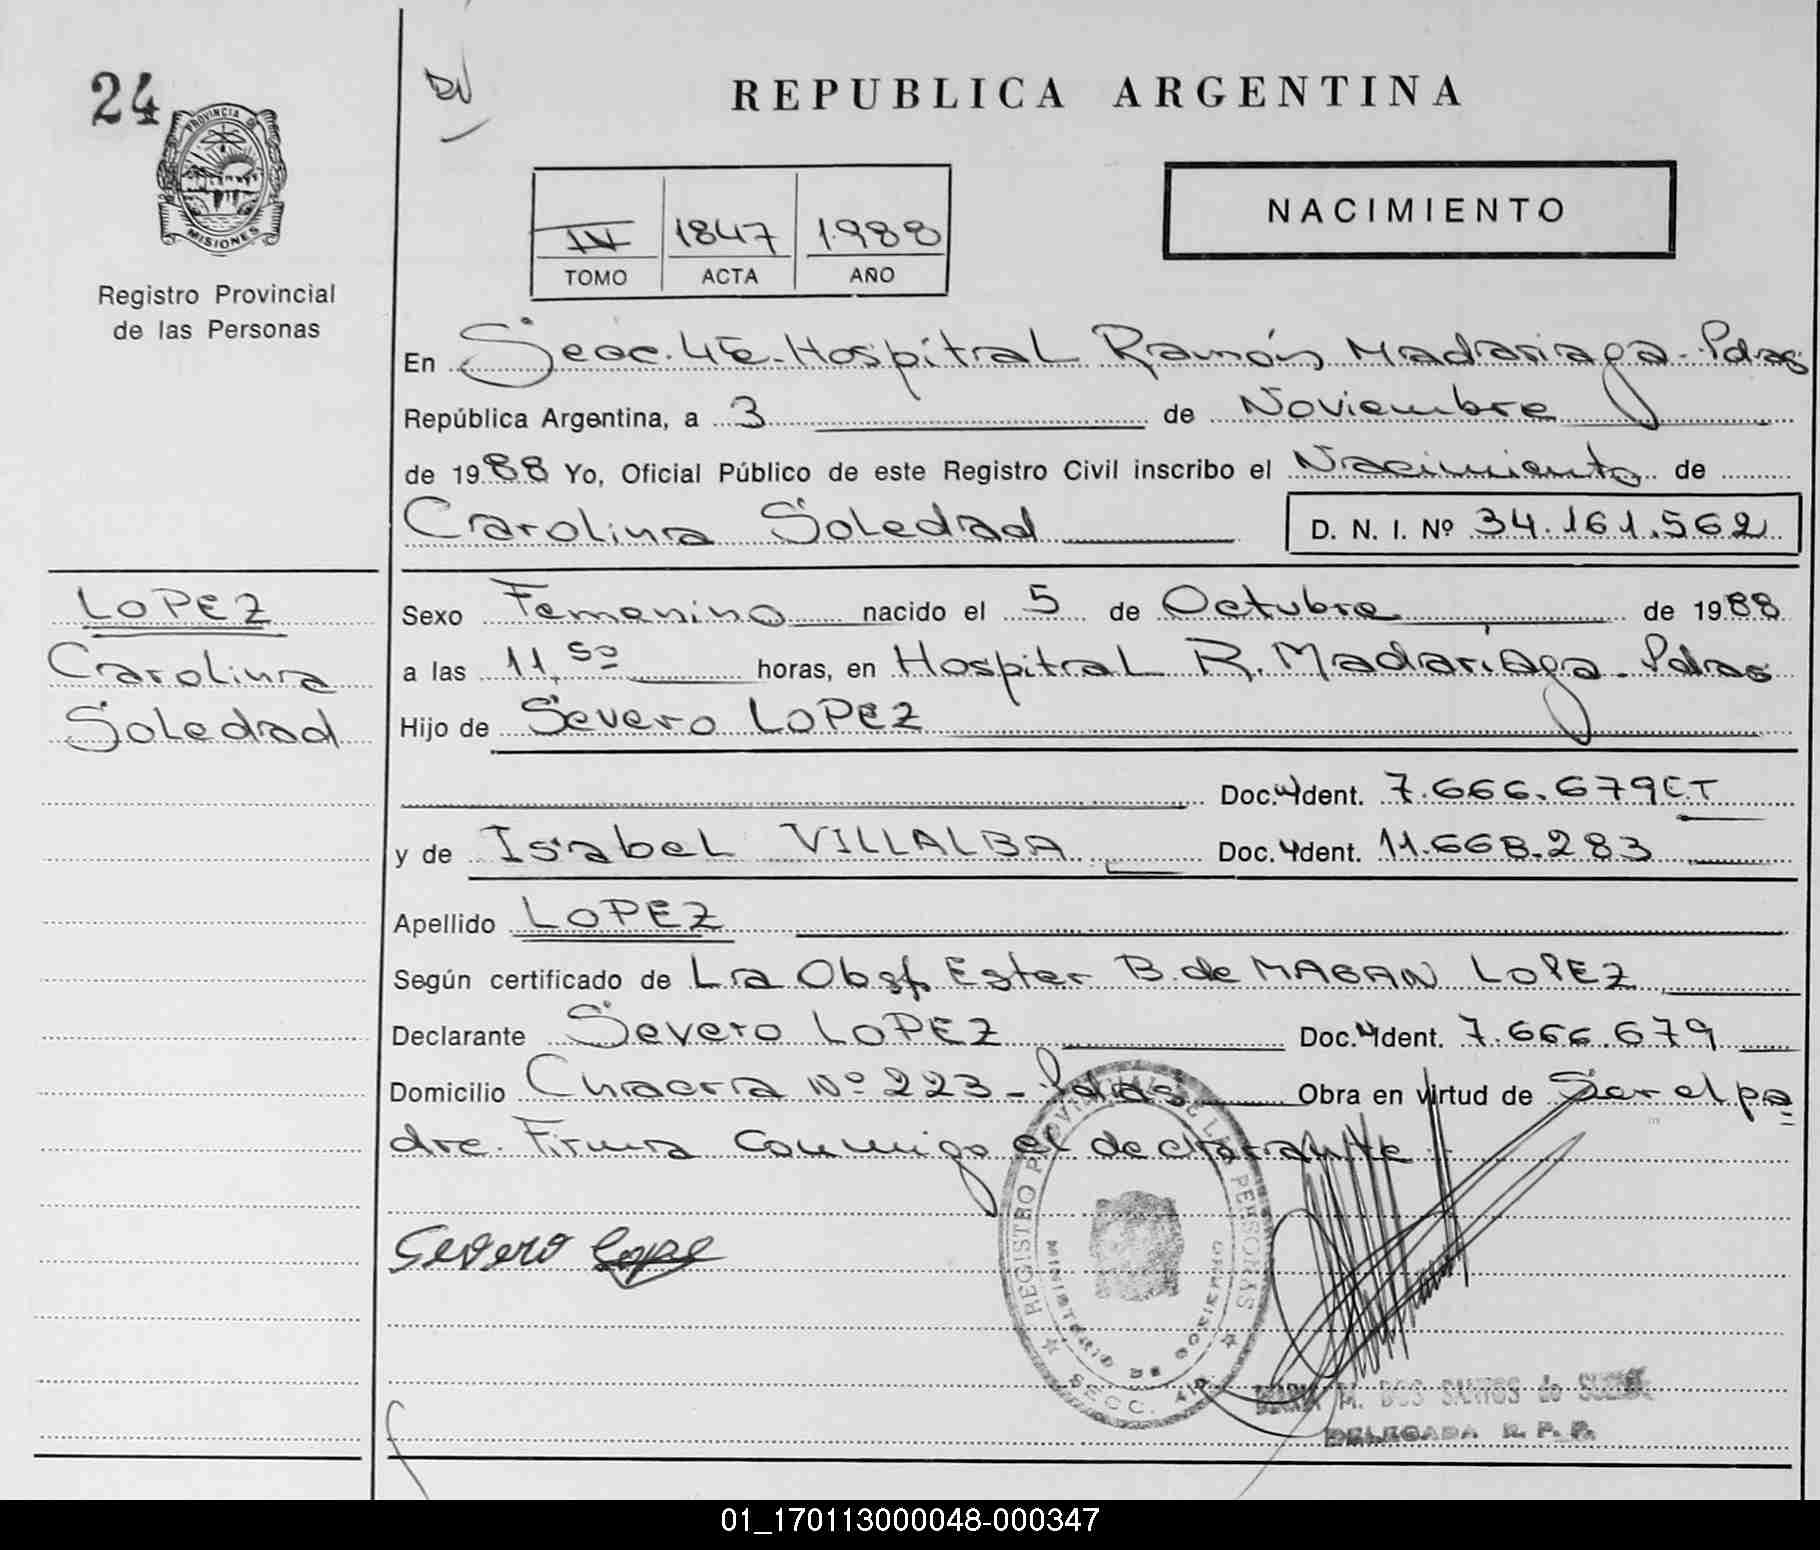 24
PROVINCIA DE
MISIONES
Registro Provincial
de las Personas
REPUBLICA ARGENTINA
NACIMIENTO
IV 1847 1988
TOMO ACTA AÑO
En Secc. 4ta. Hospital Ramón Madariaga - Pdas
República Argentina, a 3 de Noviembre
de 1988 Yo, Oficial Público de este Registro Civil inscribo el Nacimiento de
Carolina Soledad D. N. I. Nº 34.161.562
LOPEZ
Carolina
Soledad
Sexo Femenino nacido el 5 de Octubre de 1988
a las 11,50 horas, en Hospital R. Madariaga - Pdas
Hijo de Severo LOPEZ
Doc. Ident. 7.666.679 CT
y de Isabel VILLALBA Doc. Ident. 11.668.283
Apellido LOPEZ
Según certificado de La Obst. Ester B. de MABAN LOPEZ
Declarante Severo LOPEZ Doc. Ident. 7.666.679
Domicilio Chacra Nº 223 - Pdas Obra en virtud de Ser el pa
dre. Firma conmigo el declarante.
Severo Lope
REGISTRO PROVINCIAL DE LAS PERSONAS
MINISTERIO DE GOBIERNO
SECC. 4ta
M. DOS SANTOS de
DELEGADA R. P. P.
01_170113000048-000347